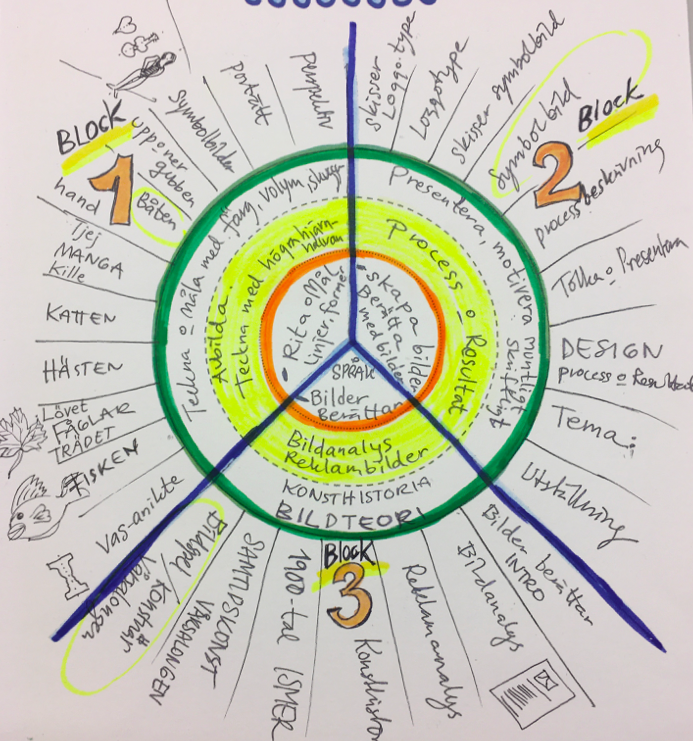 BLOCK
1
hand
Tjej
MANGA
Kille
KATTEN
HÄSTEN
Lövet
FÅGLAR
TRÄDET
FISKEN
Vas-antikte
Båten
upponer
gubben
Symbolbilder
porträtt
perspektiv
skisser
Loggo.type
Loggotype
skisser symbolbild
Symbolbild
BLOCK
2
processbeskrivning
Tolka o Presentera
DESIGN
process o Resultat
Tema:
Utställning
Bilder berättar
INTRO
Bildanalys
Reklamanalys
BLOCK
3
Konsthisto
1900-tal ISMER
SAMTIDSKONST
VÅRSALONGEN
Bildspel/Konstnär
Vårsalongen
Teckna o måla med färg, volym,
Avbilda.
Teckna med högra hjärn-
halvan
Presentera, motivera muntligt
skriftligt
Process o Resultat
• Rita o Mål
linjer, former
• skapa bilder
Berätta
med bilder
SPRÅK
• Bilder
berättar
Bildanalys
Reklambilder
KONSTHISTORIA
BILDTEORI